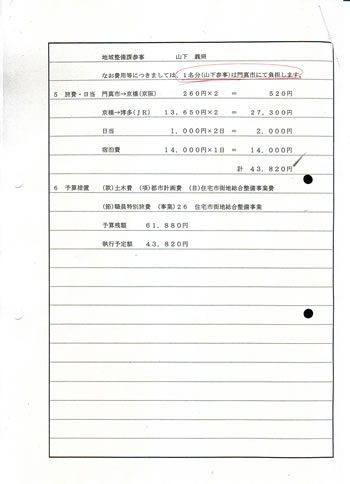 地域整備課参事　　　山下　義照
なお費用等につきましては、1名分(山下参事)は門真市にて負担します。
5　旅費・日当　門真市→京橋(京阪)　　260円×2　＝　520円
京橋→博多(JR)　13,650円×2　＝　27,300円
日当　1,000円×2日　＝　2,000円
宿泊費　14,000円×1日　＝　14,000円
計　43,820円
6　予算措置　(款)土木費　(項)都市計画費　(目)住宅市街地総合整備事業費
(節)職員特別旅費　(事業)26　住宅市街地総合整備事業
予算残額　61,880円
執行予定額　43,820円